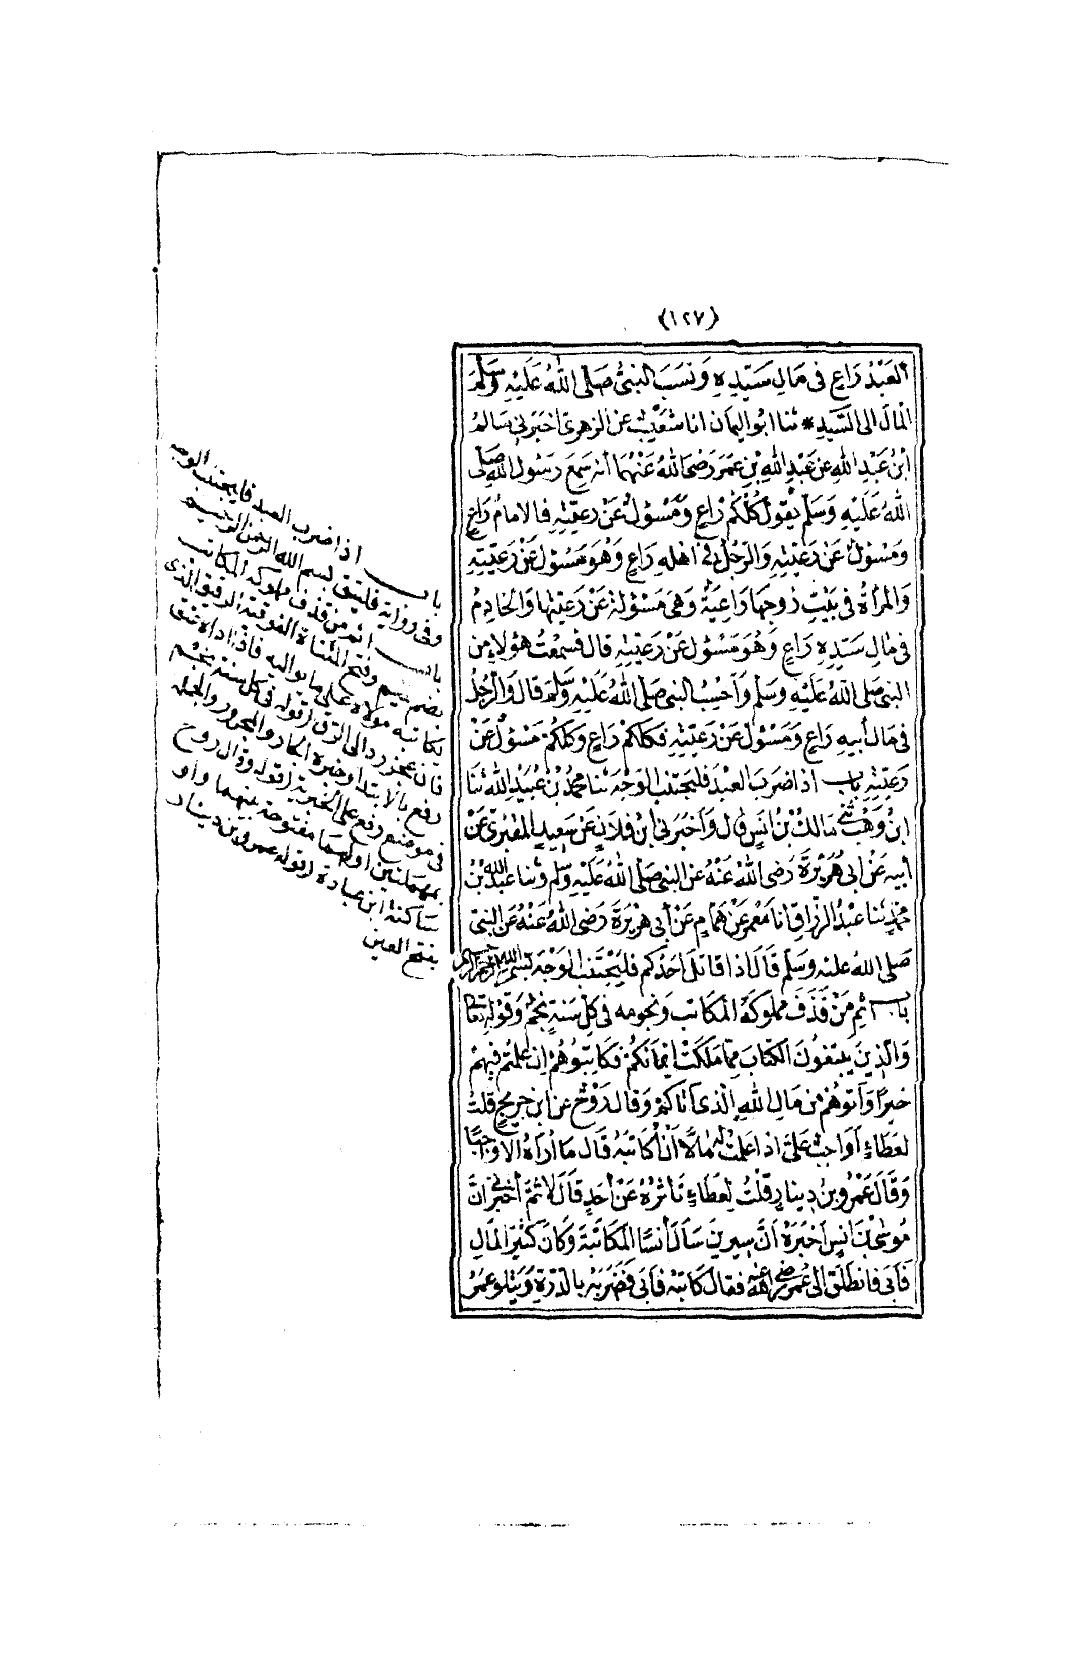 (١٢٧)
العَبْدُ رَاعٍ فى مَالِ سَيِّدِهِ وَنَسَبَ النبىُّ صَلى اللهُ عَلَيْهِ وسَلَّمَ
المْالَ الى السَّيِّدِ * ثنا ابُو اليمَان انا شعَيْبٌ عن الزهرىّ اخبَرَنى سَالمُ
ابنُ عَبْدِ اللهِ عن عَبْدِ اللهِ بْنِ عمَرَ رَضىَ اللهُ عَنْهُمَا أنه سَمِعَ رَسُولَ اللهِ صَلى
اللهُ عَلَيْهِ وَسَلَّم يَقولُ كُلُّكُمْ رَاعٍ وَمَسْؤلٌ عَنْ رَعيَّتِهِ فالامَامُ رَاعٍ
وَمَسْؤلٌ عَنْ رَعيَّتِهِ وَالرَّجُلُ فى اهْلهِ رَاعٍ وَهُوَ مَسْؤلٌ عَنْ رَعيَّتِهِ
وَالمرْأةُ فى بَيْتِ زَوجِهَا رَاعيَةٌ وَهىَ مَسْؤلَةٌ عَنْ رَعيَّتِهَا وَالخادِمُ
فى مَالِ سَيّدِهِ رَاعٍ وَهُوَ مَسْؤلٌ عَنْ رَعيَّتِهِ قال فسَمِعْتُ هؤلاءِ من
النبى صَلى اللهُ عَلَيْهِ وسَلم وَاَحْسِبُ النبى صَلى اللهُ عَلَيْهِ وسَلَّمَ قال وَالرَّجُلُ
فى مَال أبيهِ رَاعٍ وَمَسْؤلٌ عَنْ رَعيَّتِهِ فكلكمْ رَاعٍ وَكلكُمْ مَسْؤلٌ عَنْ
رَعيَّتِهِ باب اذا ضَرَبَ العبْدَ فليجتنِب الوَجْهَ ثنا محمدُ بْنُ عُبَيْدِ اللهِ ثنا
ابْنُ وَهبٍ ثنى مَالكُ بْنُ انسٍ قال وَاخبَرَنى ابن فلانٍ عن سَعِيدٍ المقبُرىّ عَنْ
أبيه عَنْ ابى هُرَيْرَةَ رَضى اللهُ عَنْهُ عن النبى صَلى اللهُ عَلَيْهِ وسَلم وثنا عبدُ اللهِ بْنُ
محمدٍ ثنا عَبْدُ الرَّزاقِ انا مَعْمَرٌ عَنْ هَمامٍ عَنْ أبى هرَيْرَةَ رَضىَ اللهُ عَنْهُ عَن النبىّ
صَلى اللهُ عليْهِ وَسَلَّم قَالَ اذا قاتلَ احَدُكم فليَجْتَنِب الوَجْهَ بسْمِ اللهِ الرّحمنِ الرّحيم
باب اثمِ مَنْ قَذَفَ مملوكَهُ المكاتَب وَنجومه فى كلّ سَنةٍ نجْمٌ وَقوْلِهِ تعَالى
وَالّذِينَ يَبتغُونَ الكتابَ ممّا مَلَكَتْ ايْمَانكُمْ فكَاتِبُوهُمْ اِن عَلمتُم فيهمْ
خيرًا وَآتوهُمْ من مَالِ اللهِ الذى آتاكمْ وَقال رَوْحٌ عن ابن جريجٍ قلتُ
لعَطاءٍ أوَاجبٌ علىَّ اذا علمتُ له مالاً أنْ اكاتبَهُ قَال مَا أُرَاهُ الا واجبًا
وَقَالَ عَمْرُو بنُ دِينارٍ قلْتُ لِعَطَاءٍ تَأثرُهُ عَنْ أحَدٍ قَالَ لَا ثمَّ أخبَرَنى أنَّ
مُوسى بْنَ أنسٍ اَخبَرَهُ أنَّ سِيرينَ سَألَ أنسًا المكاتَبَةَ وَكانَ كَثيرَ المَالِ
فَأبَى فانطَلَقَ الى عُمَرَ رَضى اللهُ عنهُ فقال كَاتِبْهُ فَأبَى فَضرَبَهُ بالدّرَّةِ وَيتْلو عمَرُ
باب اذا ضرب العبد فليجتنب الوجه
وفى رواية فليتق بسم الله الرحمن الرحيم
باب اثم من قذف مملوكه المكاتب
بضم الميم وفتح المثناة الفوقية الرقيق الذى
يكاتبه مولاه على مال يؤديه فاذا اداه عتق
فان عجز رد الى الرق (قوله فى كل سنة نجم
رفع بالابتداء وخبره الجار والمجرور والجملة
فى موضع رفع على الخبرية (قوله وقال روح
بمهملتين اولاهما مفتوحة بينهما واو
ساكنة ابن عبادة (قوله عمرو بن دينار
بفتح العين